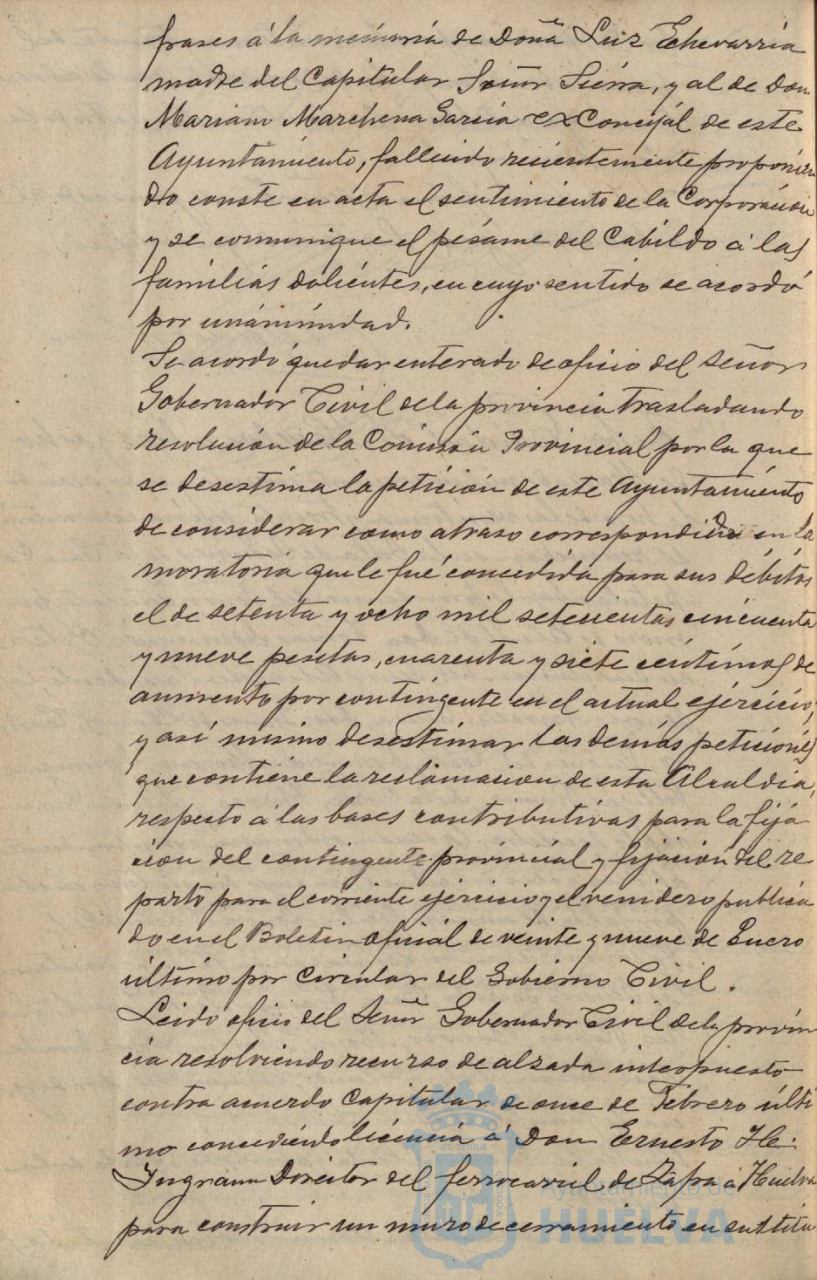 frases á la memoria de Doña Luz Echevarria
madre del Capitular Señor Sierra, y al de Don
Mariano Marchena Garcia ex Concejál de este
Ayuntamiento, fallecido recientemente proponien
do conste en acta el sentimiento de la Corporación
y se comunique el pésame del Cabildo á las
familias dolientes, en cuyo sentido se acordó
por unánimidad.
Se acordó quedar enterado de oficio del Señor
Gobernador Civil de la provincia trasladando
resolución de la Comisión Provincial por la que
se desestima la petición de este Ayuntamiento
de considerar como atraso correspondido en la
moratoria que le fué concedida para sus débitos
el de setenta y ocho mil setecientas cincuenta
y nueve pesetas, cuarenta y siete céntimos de
aumento por contingente en el actual ejercicio,
y así mismo desestimar las demás peticiones
que contiene la reclamacion de esta Alcaldia,
respecto á las bases contributivas para la fija-
cion del contingente provincial y fijación del re
parto para el corriente ejercicio y el venidero publica
do en el Boletin oficial de veinte y nueve de Enero
último por circular del Gobierno Civil.
Leido oficio del Señor Gobernador Civil de la provin
cia resolviendo recurso de alzada interpuesto
contra acuerdo Capitular de once de Febrero últi
mo concediendo licencia á Don Ernesto He.
Ingram Director del ferrocarril de Zafra á Huelva
para construir un muro de cerramiento en sustitu
Ayuntamiento de
HUELVA